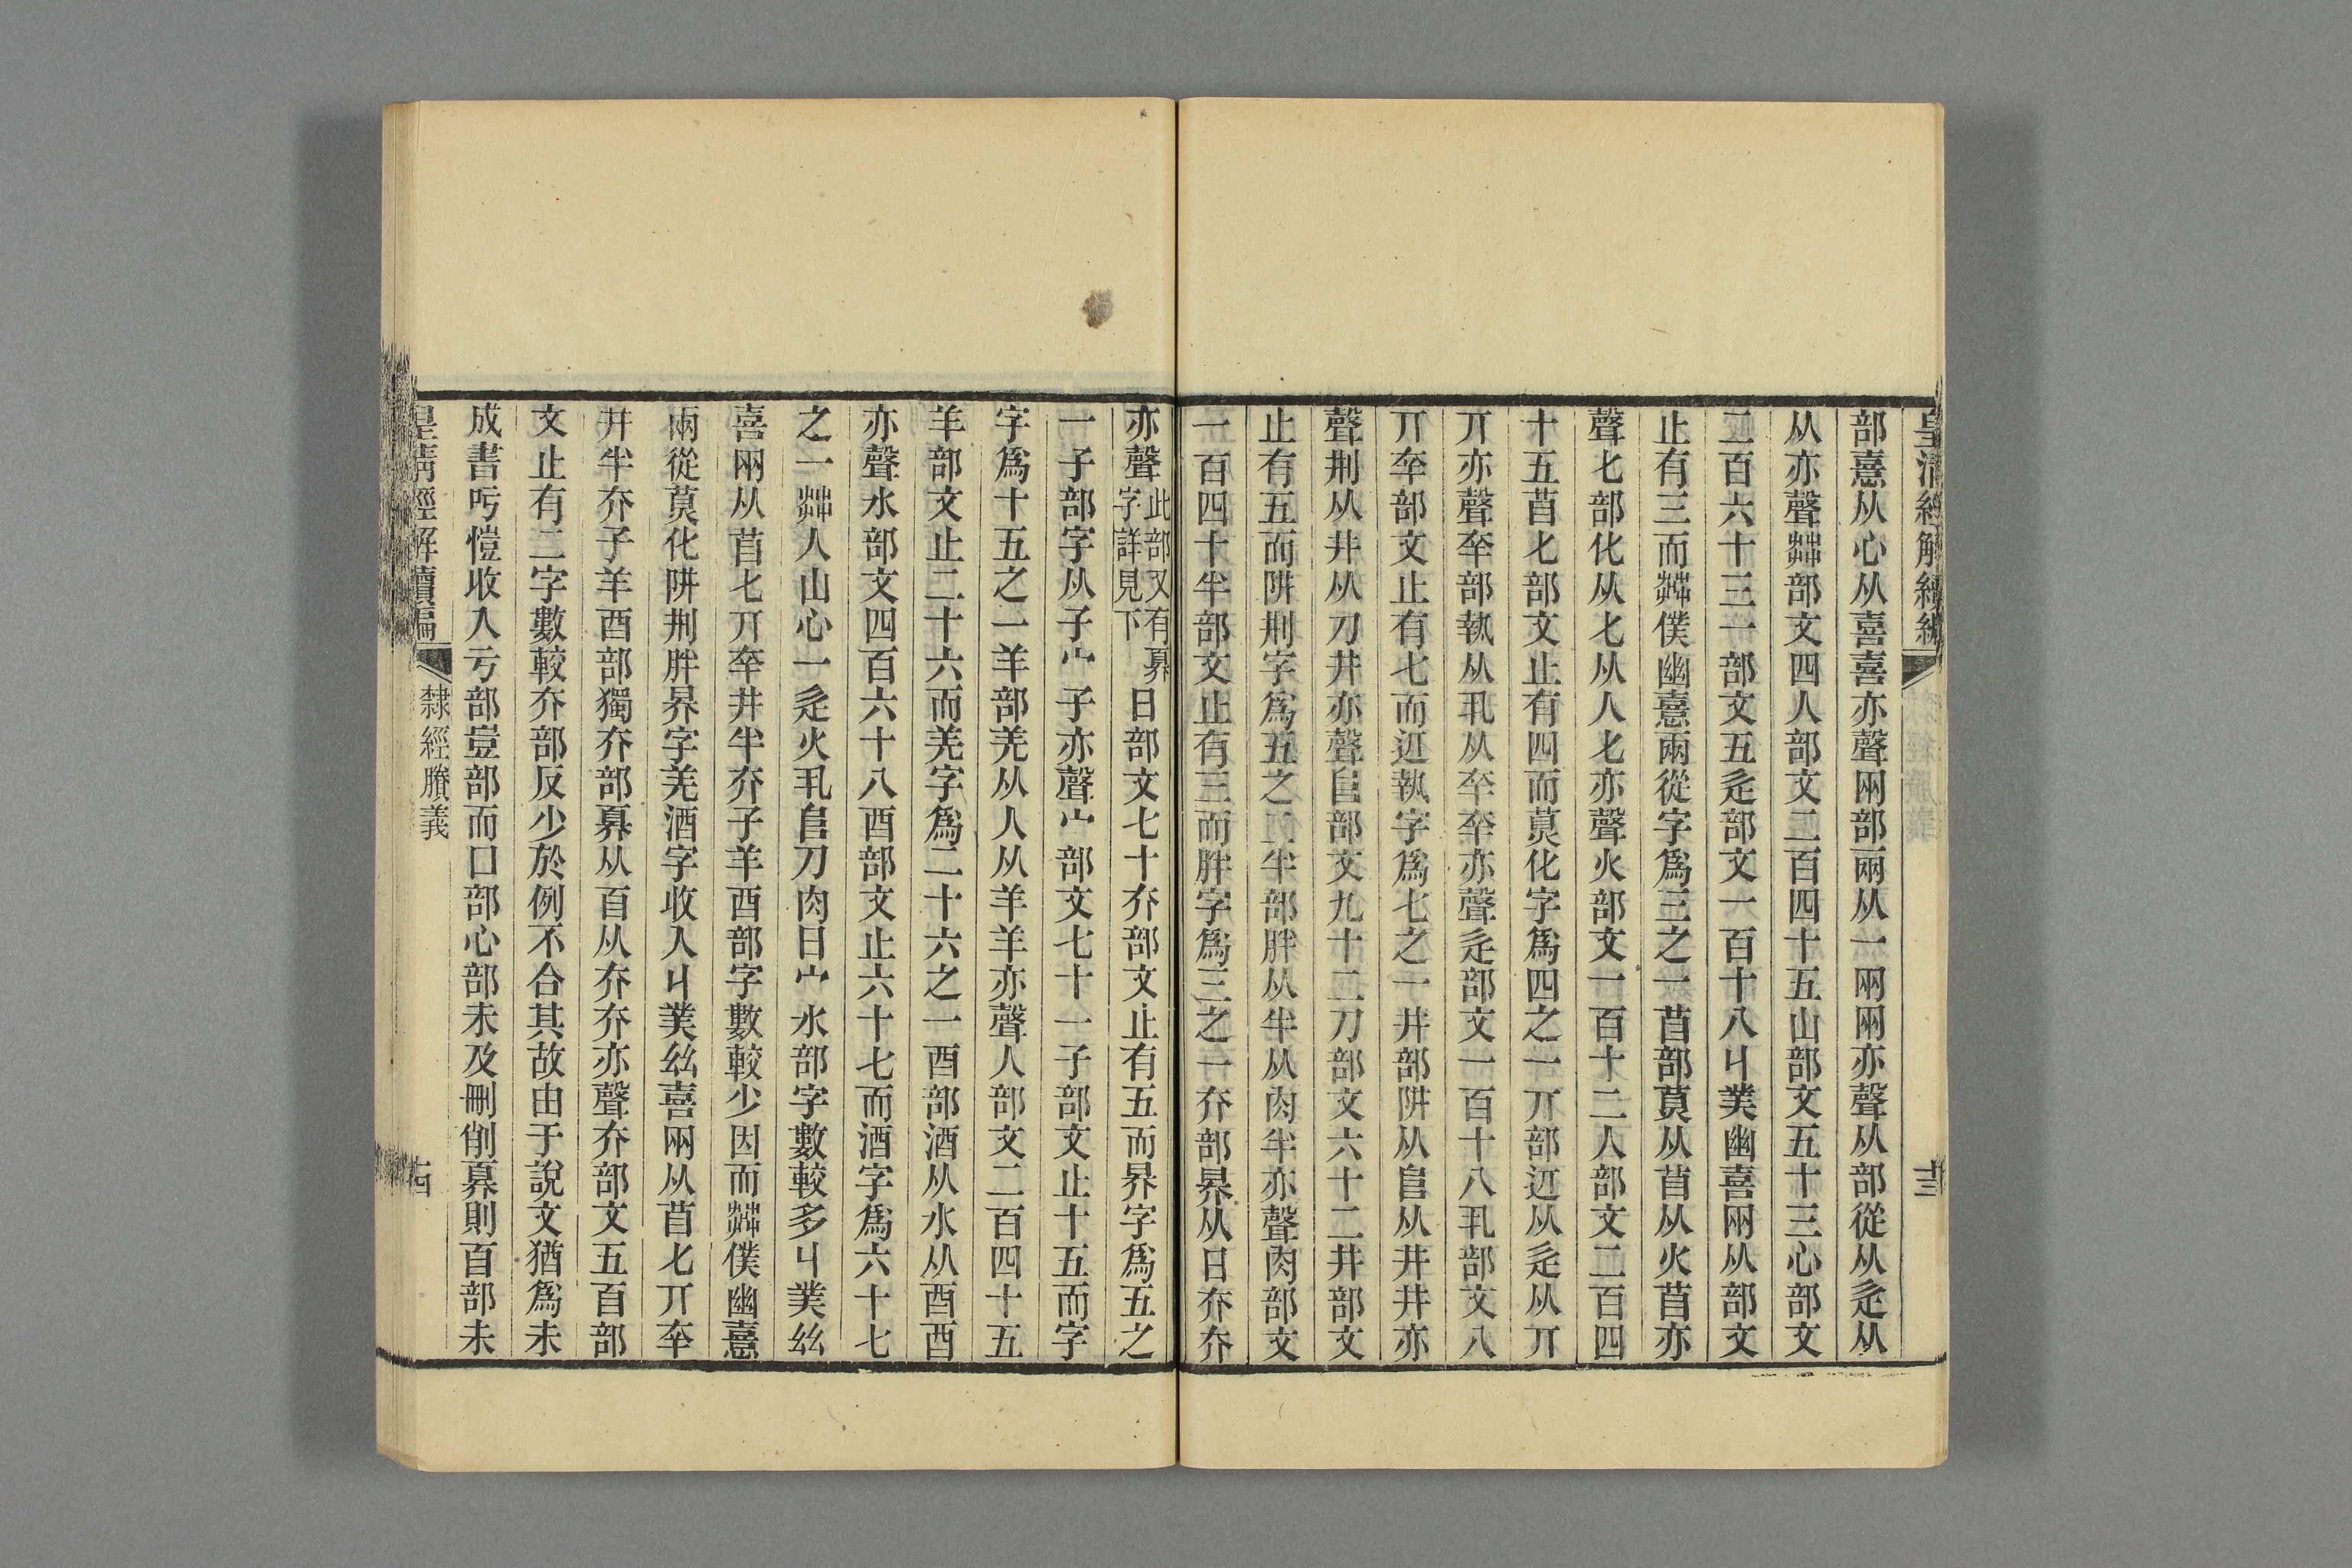 皇清經解續編
十三
部憙从心从喜喜亦聲㒳部兩从一㒳㒳亦聲从部從从辵从
从亦聲茻部文四人部文二百四十五山部文五十三心部文
二百六十三一部文五辵部文一百十八丩菐幽喜㒳从部文
止有三而茻僕幽憙兩從字爲三之一苜部莫从苜从火苜亦
聲匕部化从匕从人匕亦聲火部文一百十二人部文二百四
十五苜匕部文止有四而莫化字爲四之一丌部䢋从辵从丌
丌亦聲㚔部執从丮从㚔㚔亦聲辵部文一百十八丮部文八
丌㚔部文止有七而䢋執字爲七之一井部阱从𨸏从井井亦
聲荆从井从刀井亦聲𨸏部文九十二刀部文六十二井部文
止有五而阱荆字爲五之一半部胖从半从肉半亦聲肉部文
一百四十半部文止有三而胖字爲三之一夰部界从日夰夰
亦聲此部又有㬥字詳見下日部文七十夰部文止有五而界字爲五之
一子部字从子宀子亦聲宀部文七十一子部文止十五而字
字爲十五之一羊部羌从人从羊羊亦聲人部文二百四十五
羊部文止二十六而羌字爲二十六之一酉部酒从水从酉酉
亦聲水部文四百六十八酉部文止六十七而酒字爲六十七
之一茻人山心一辵火丮𨸏刀肉日宀水部字數較多丩菐𢆶
喜㒳从苜匕丌㚔井半夰子羊酉部字數較少因而茻僕幽憙
兩從莫化阱荆胖界字羌酒字收入丩菐𢆶喜㒳从苜匕丌㚔
井半夰子羊酉部獨夰部㬥从𦣻从夰夰亦聲夰部文五百部
文止有二字數較夰部反少於例不合其故由于說文猶爲未
成書㕤愷收入亏部豈部而口部心部未及刪削㬥則百部未
皇清經解續編
隸經賸義
十四